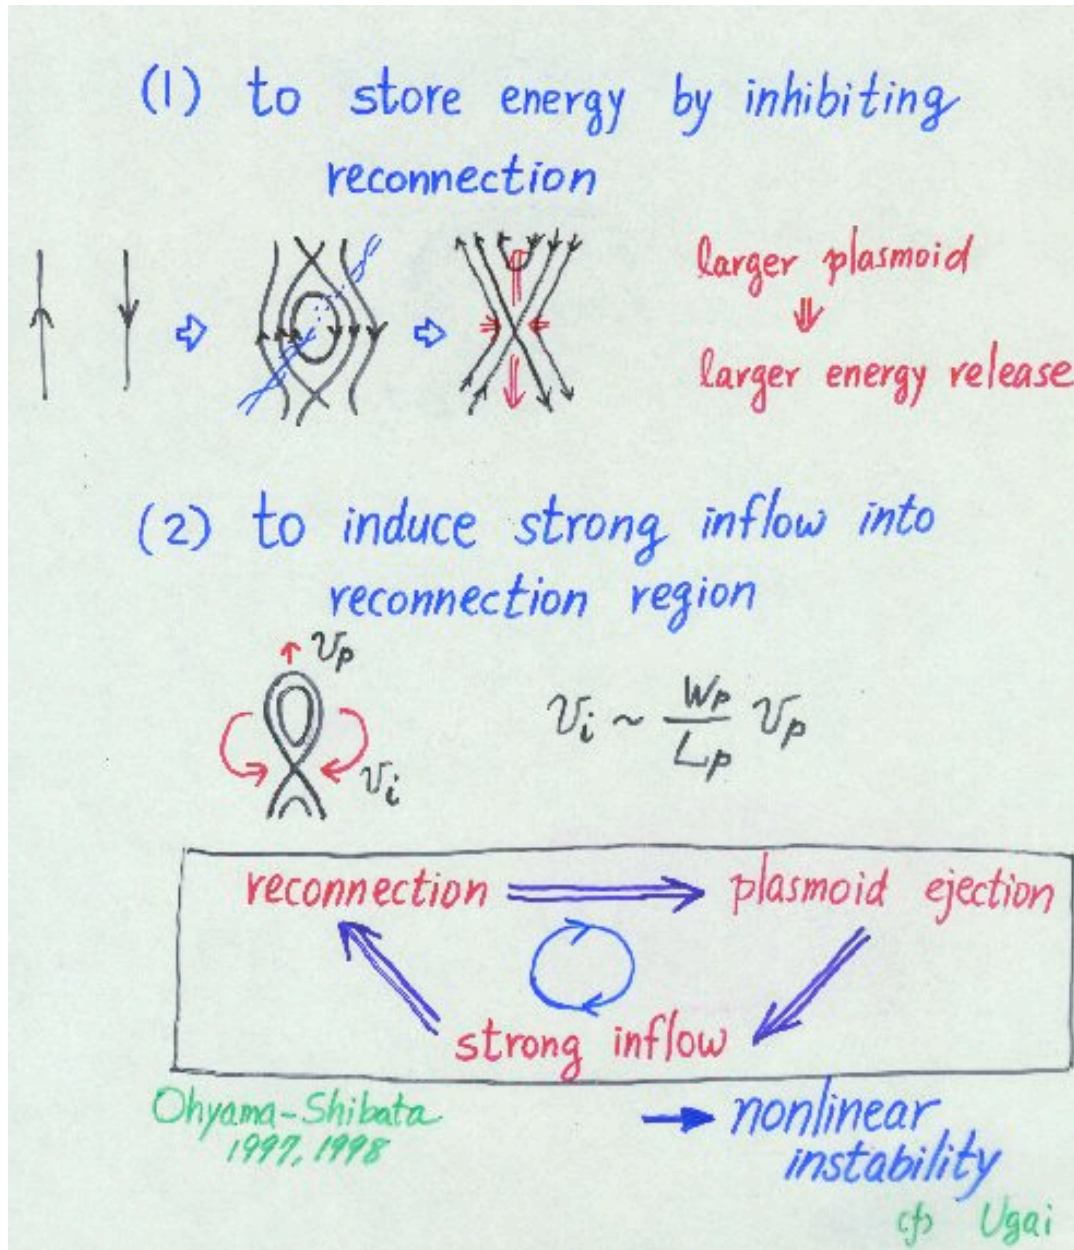 (1) to store energy by inhibiting
reconnection
larger plasmoid
⇓
larger energy release
(2) to induce strong inflow into
reconnection region
Vp
Vi
Vi ~ Wp/Lp Vp
reconnection ⇒ plasmoid ejection
strong inflow
Ohyama-Shibata
1997, 1998
→ nonlinear
instability
cf) Ugai